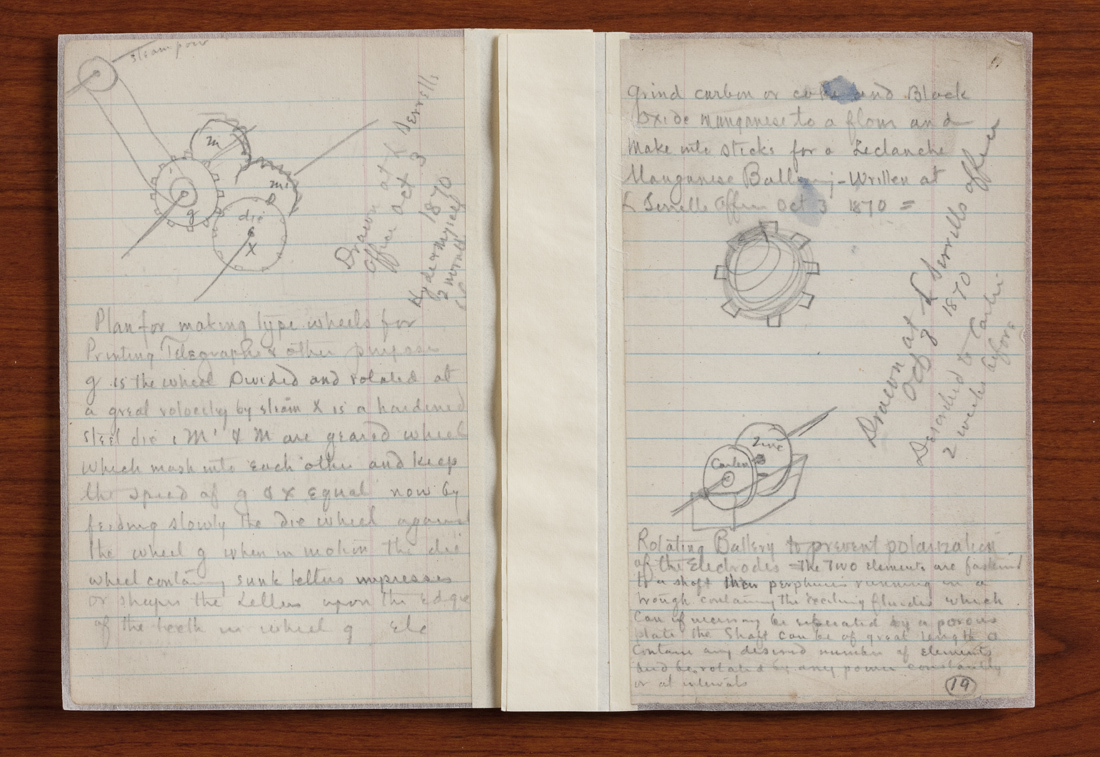 steam pow
m
m'
g
die
X
Drawn at L Serrells
Office Oct 3
1870
Plan for making type wheels for
Printing Telegraphs & other purposes
g is the wheel Divided and rotated at
a great velocity by steam X is a hardened
steel die & M' & M are geared wheels
which mash into each other and keep
the speed of g & X Equal now by
feeding slowly the die wheel against
the wheel g when in motion the die
wheel containing sunk letters impresses
or shapes the Letters upon the Edge
of the teeth in wheel g Etc
Grind carbon or coke and Black
Oxide manganese to a flour and
Make into sticks for a Leclanche
Manganese Battery;- Written at
L Serrells Office Oct 3 1870 =
Drawn at L Serrells office
Oct 3 1870
Described to
2 weeks before
Zinc
Carbon
Rotating Battery to prevent polarization
of the Electrodes = The Two elements are fastened
to a shaft their peripheries running in a
trough containing the exciting fluids which
Can if necessary be separated by a porous
plate the Shaft can be of great length &
Contain any desired number of Elements
And be rotated by any power constantly
or at intervals
19